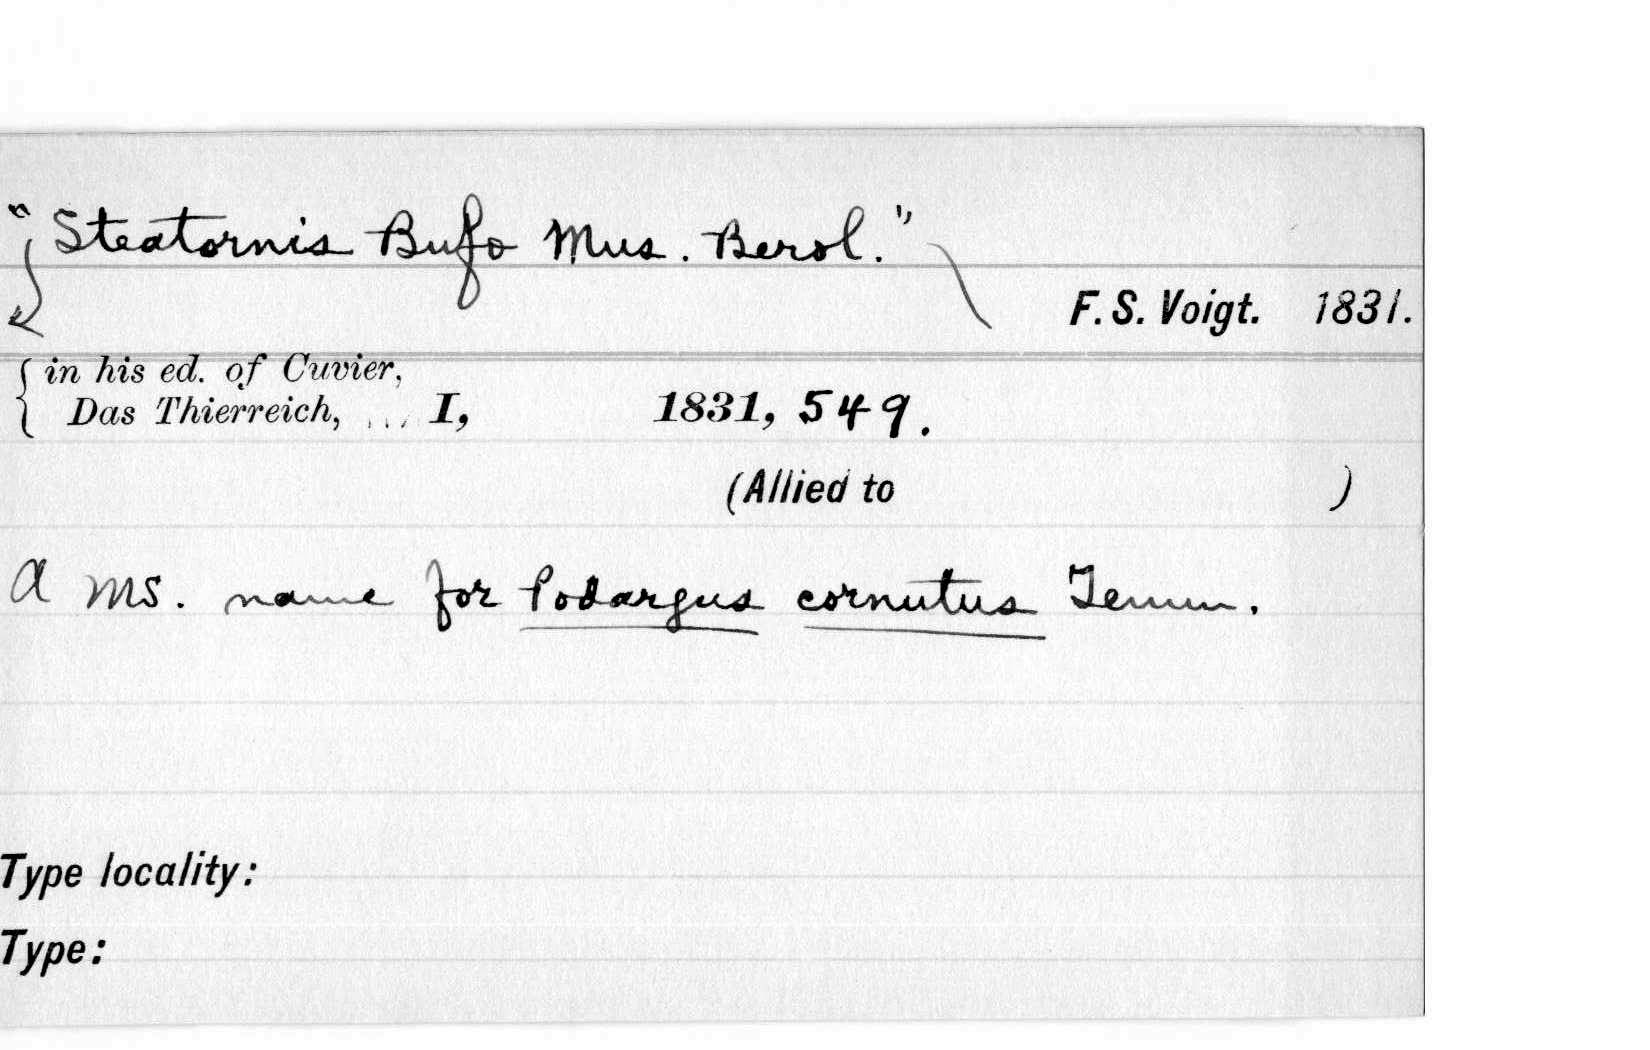 "Steatornis Bufo Mus. Berol."
F. S. Voigt. 1831.
in his ed. of Cuvier,
Das Thierreich, ... I, 1831, 549.
(Allied to )
A MS. name for Podargus cornutus Temm.
Type locality:
Type: